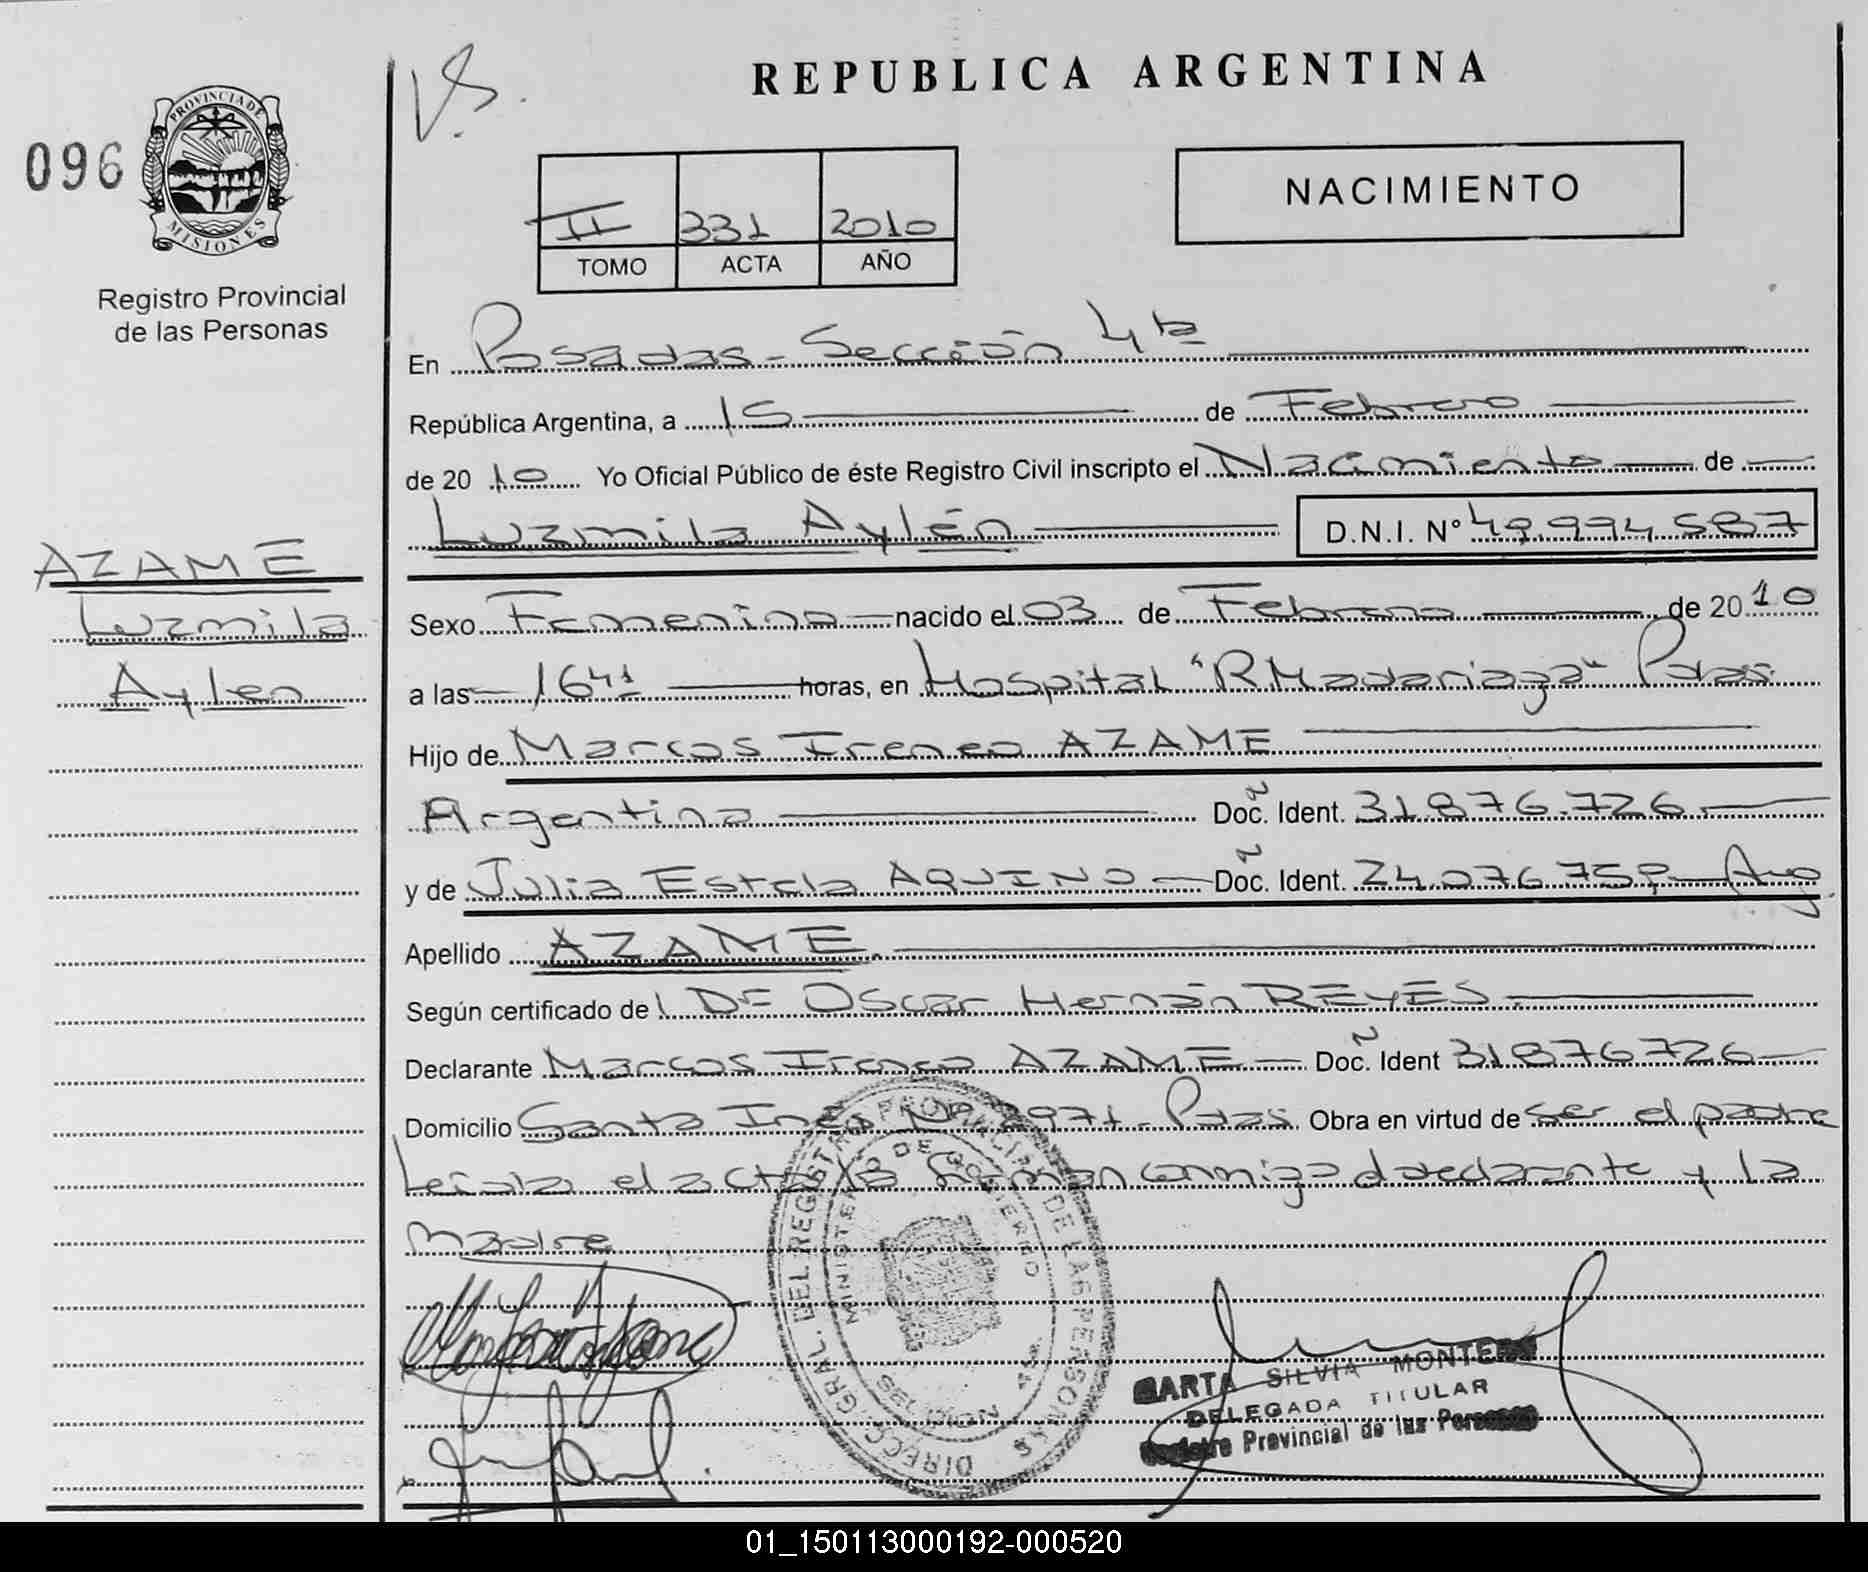 REPUBLICA ARGENTINA
V.S.
096
PROVINCIA DE MISIONES
Registro Provincial
de las Personas
II 331 2010
TOMO ACTA AÑO
NACIMIENTO
En Posadas - Sección 4ta
República Argentina, a 15 de Febrero
de 2010 Yo Oficial Público de éste Registro Civil inscripto el Nacimiento de
Luzmila Aylén D.N.I. Nº 49.994.587
AZAME
Luzmila
Aylen
Sexo Femenino nacido el 03 de Febrero de 2010
a las 16 41 horas, en Hospital "R Madariaga" Pdas.
Hijo de Marcos Ireneo AZAME
Argentino Doc. Ident. 31.876.726
y de Julia Estela AQUINO Doc. Ident. 24.076.758 Arg.
Apellido AZAME
Según certificado de Oscar Hernán REYES
Declarante Marcos Ireneo AZAME Doc. Ident 31876726
Domicilio Santa Inés Nº 971 - Pdas. Obra en virtud de ser el padre
Leída el acta la firman conmigo el declarante y la
madre
DIRECC. GRAL. DEL REGISTRO PROVINCIAL DE LAS PERSONAS
MINISTERIO DE GOBIERNO
MISIONES
MARTA SILVIA MONTERO
DELEGADA TITULAR
Registro Provincial de las Personas
01_150113000192-000520